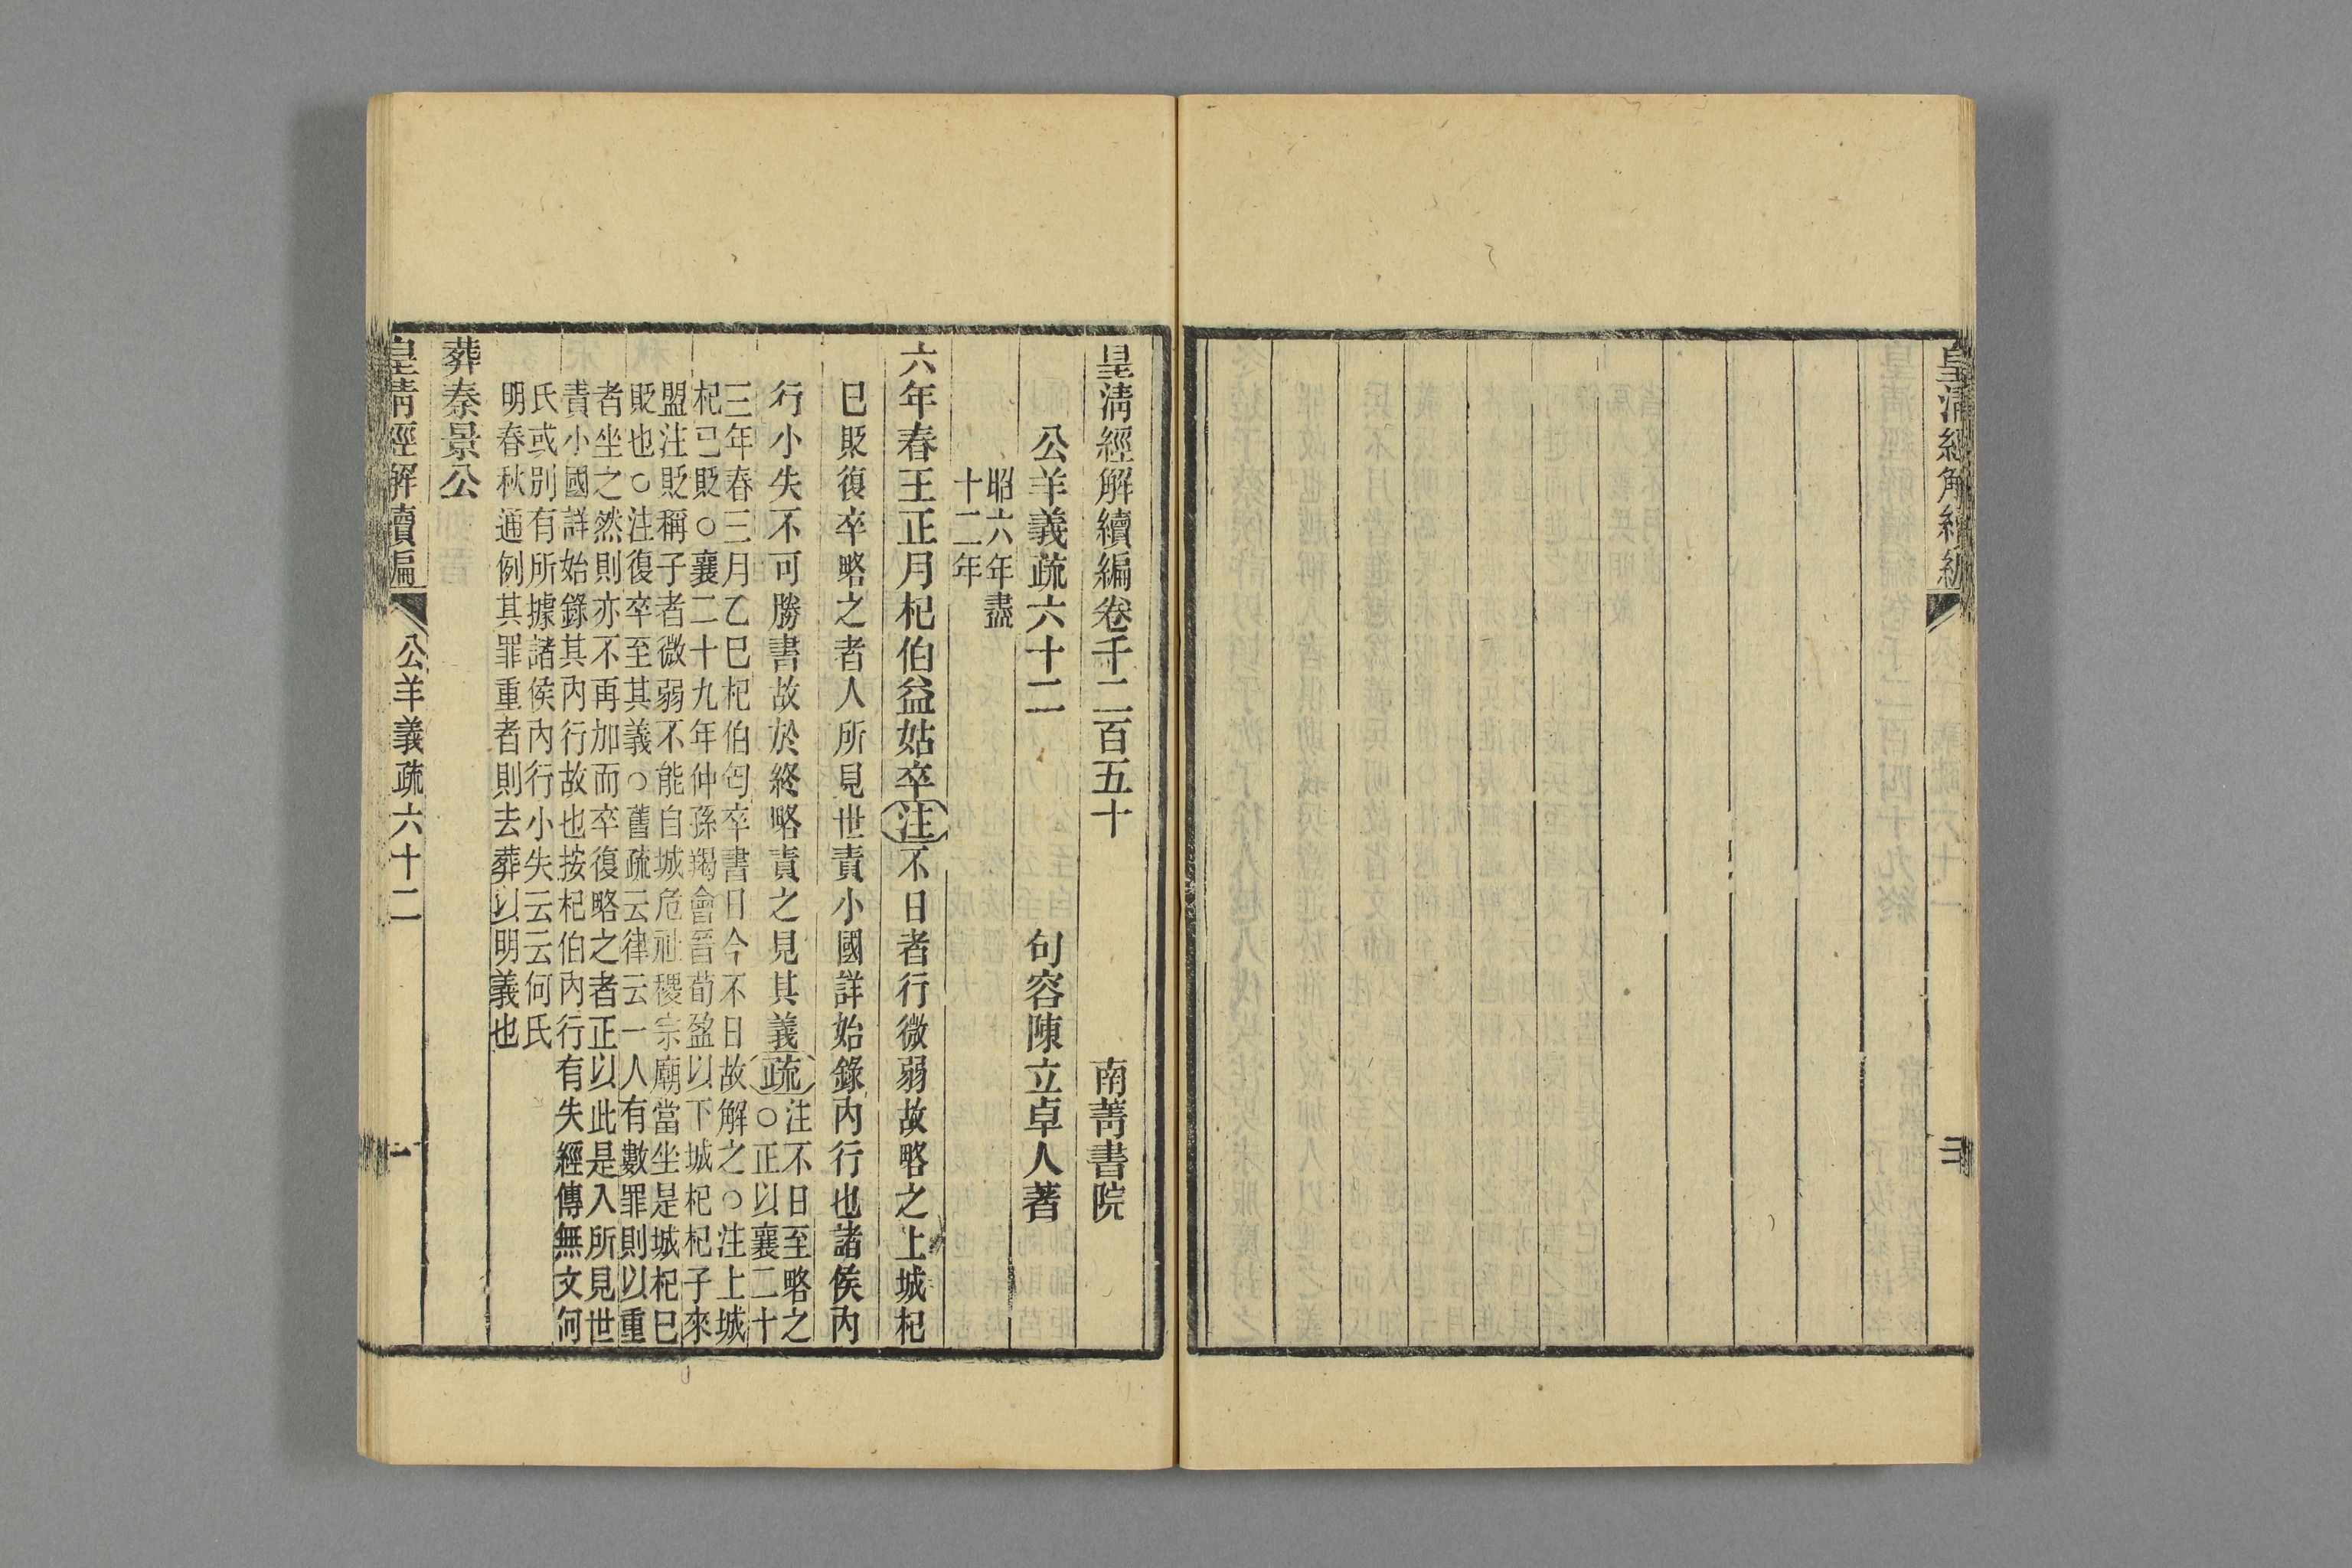 皇清經解續編
三
皇清經解續編卷千二百五十
南菁書院
公羊義疏六十二
句容陳立卓人著
昭六年盡
十二年
六年春王正月杞伯益姑卒注不日者行微弱故略之上城杞
已貶復卒略之者人所見世責小國詳始錄內行也諸侯內
行小失不可勝書故於終略責之見其義疏
注不日至略之
○正以襄二十
三年春三月乙巳杞伯匄卒書日今不日故解之○注上城
杞已貶○襄二十九年仲孫羯會晉荀盈以下城杞杞子來
盟注貶稱子者微弱不能自城危社稷宗廟當坐是城杞已
貶也○注復卒至其義○舊疏云律云一人有數罪則以重
者坐之然則亦不再加而卒復略之者正以此是入所見世
責小國詳始錄其內行故也按杞伯內行有失經傳無文何
氏或別有所據諸侯內行小失云云何氏
明春秋通例其罪重者則去葬以明義也
葬秦景公
皇清經解續編
公羊義疏六十二
一